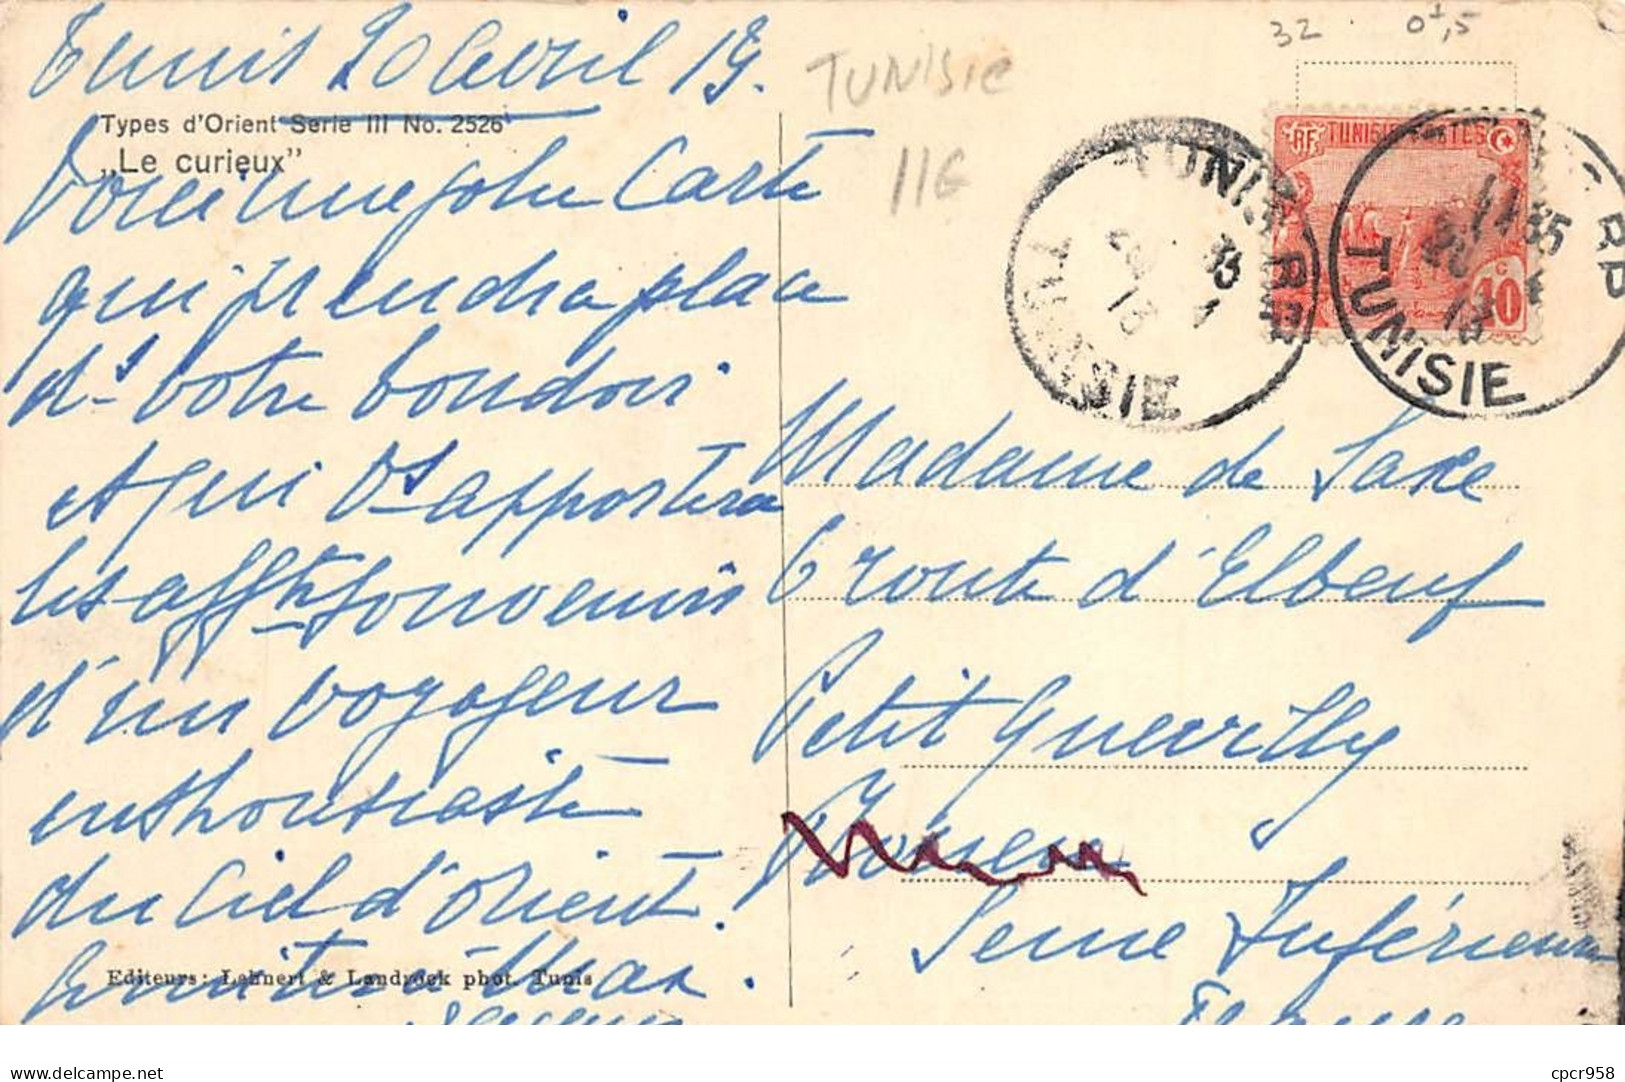 Tunis 20 Avril 19.
Types d'Orient Serie III No. 2526
„Le curieux”
Voici une jolie Carte
qui prendra place
ds votre boudoir
et qui Vs apportera
les affts souvenirs
d'un voyageur
enthousiaste
du Ciel d'Orient.
Editeurs: Lehnert & Landrock phot. Tunis
TUNISIE
116
32 0+,5
RF TUNISIE POSTES
10
c
TUNIS R.P
TUNISIE
TUNISIE
Madame de Saxe
6 route d'Elbeuf
Petit Quevilly
Rouen
Seine Inférieure
France
delcampe.net
cpcr958